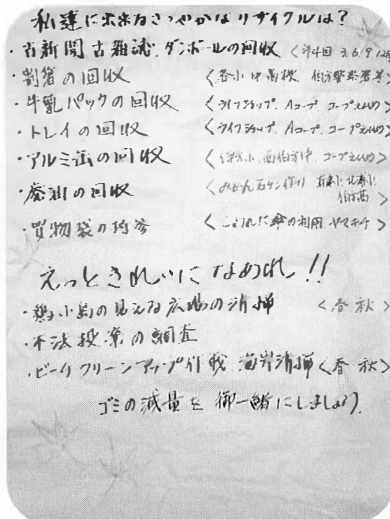 私達に出来るさゝやかなリサイクルは？
・古新聞古雑誌、ダンボールの回収 〈年4回 3.6.9.12月
・割箸の回収 〈各小中高校
・牛乳パックの回収 〈ライフショップ、Aコープ、コープえひめ〉
・トレイの回収 〈ライフショップ、Aコープ、コープえひめ〉
・アルミ缶の回収 〈 小、西伯方中、コープえひめ〉
・廃油の回収 〈みかん石ケン作り
・買物袋の持参 〈 傘の利用
えっときれいになあれ!!
・鶏小島の見える広場の清掃 〈春秋〉
・不法投棄の調査
・ビーチクリーンアップ作戦 海岸清掃〈春秋〉
ゴミの減量を御一緒にしましょう。